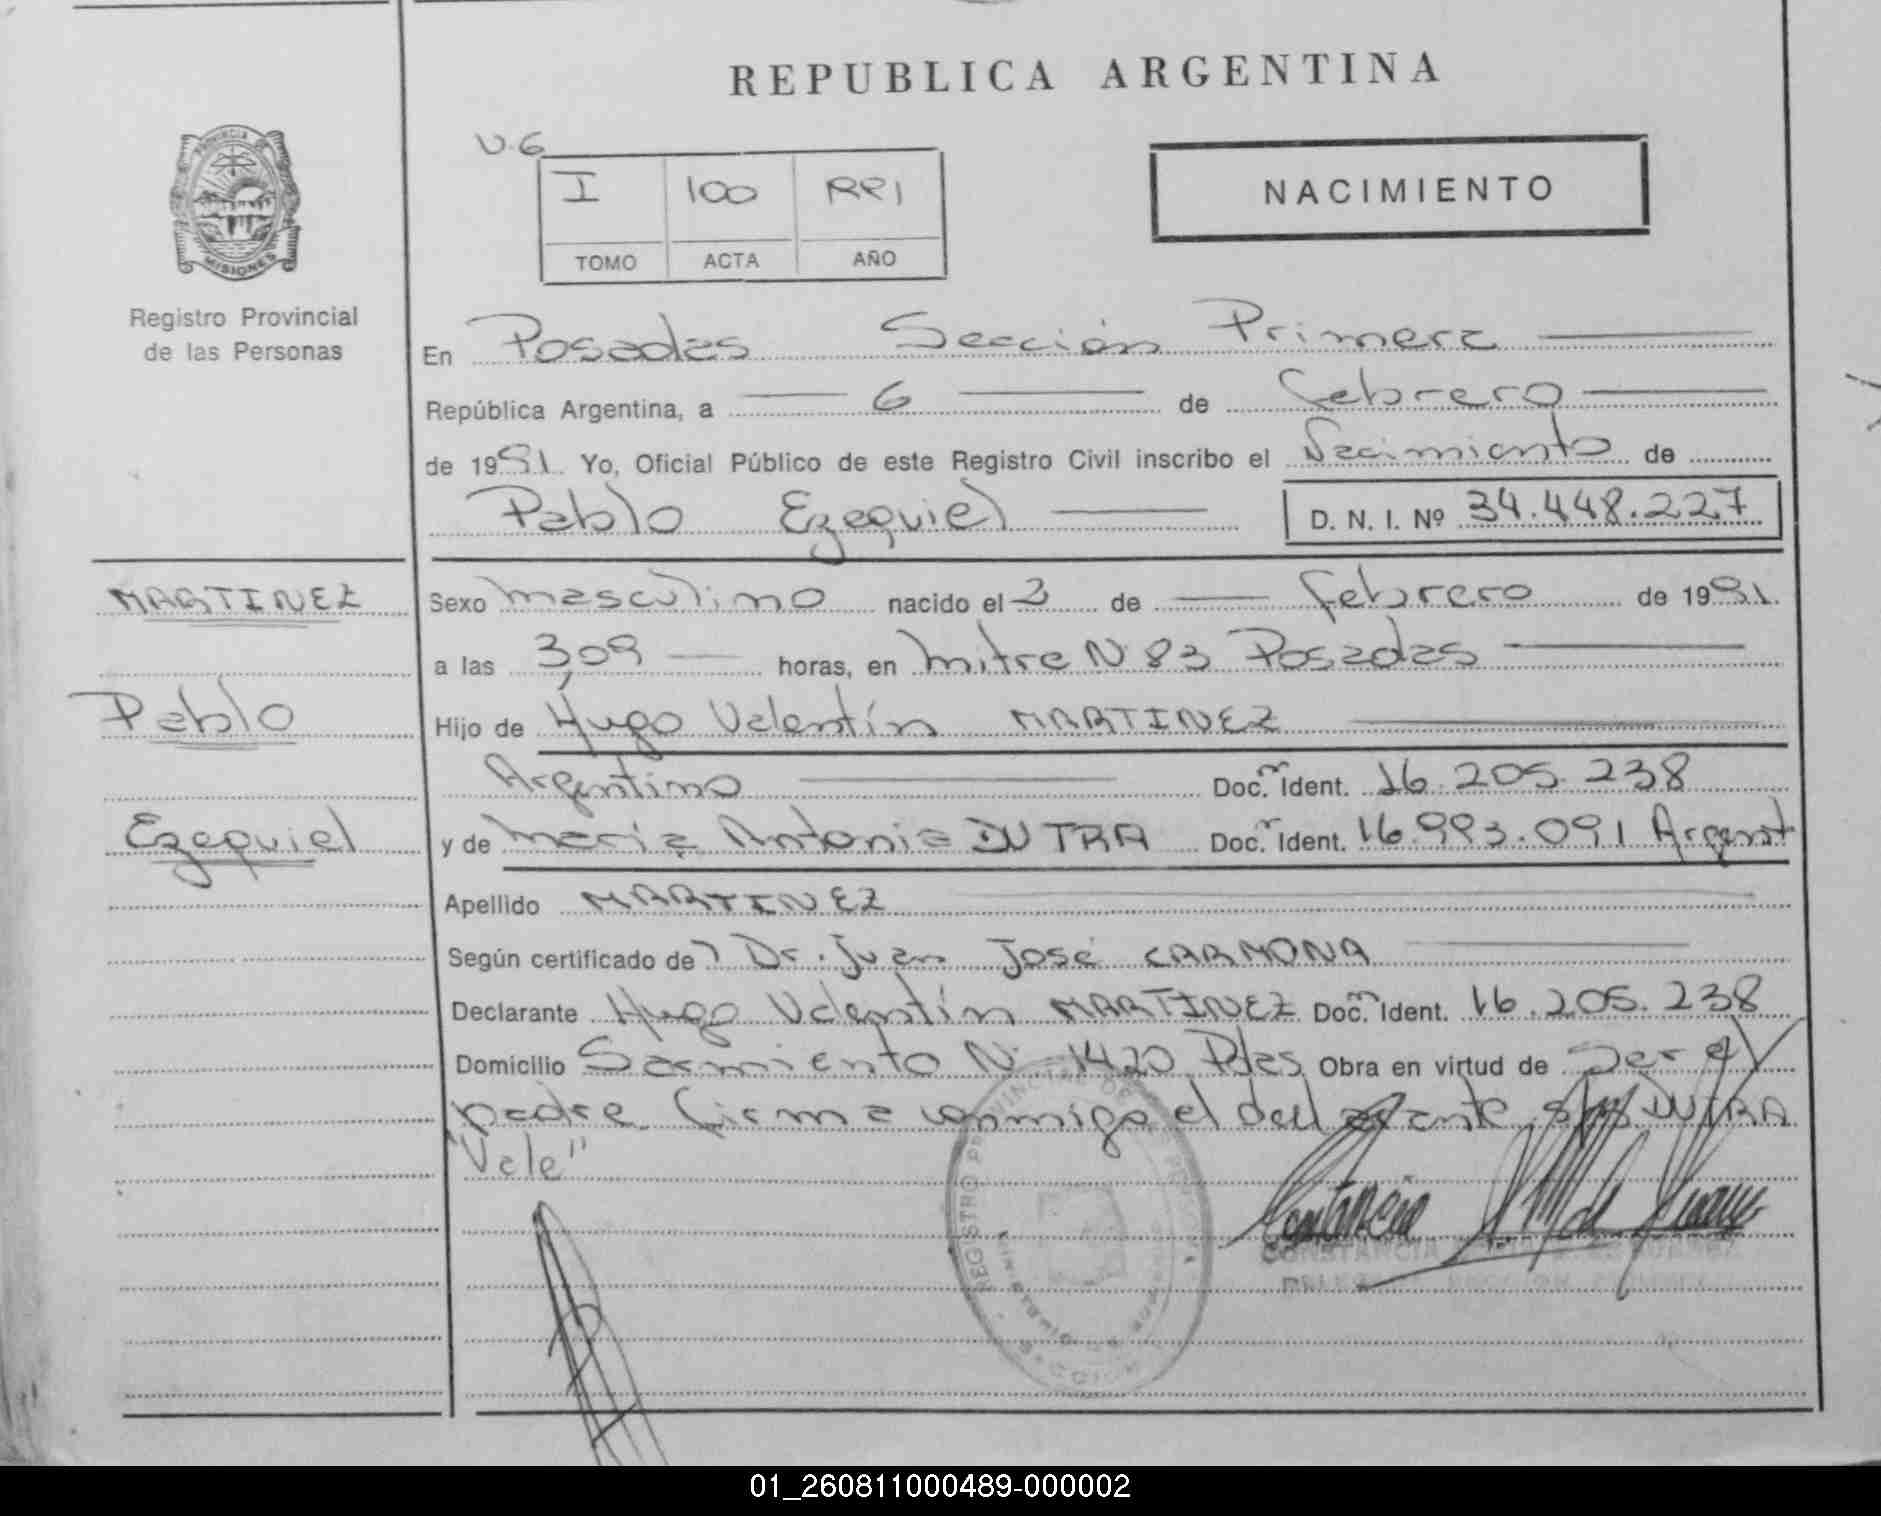 REPUBLICA ARGENTINA
PROVINCIA DE
MISIONES
Registro Provincial
de las Personas
V.6
I 100 RP1
TOMO ACTA AÑO
NACIMIENTO
En Posadas Sección Primera
República Argentina, a 6 de febrero
de 1991. Yo, Oficial Público de este Registro Civil inscribo el Nacimiento de
Pablo Ezequiel D. N. I. Nº 34.448.227
MARTINEZ
Pablo
Ezequiel
Sexo masculino nacido el 3 de febrero de 1991.
a las 3,09 horas, en Mitre N 83 Posadas
Hijo de Hugo Valentín MARTINEZ
Argentino Doc. Ident. 16.205.238
y de María Antonia DUTRA Doc. Ident. 16.993.091 Argent
Apellido MARTINEZ
Según certificado de Dr. Juan José CARMONA
Declarante Hugo Valentín MARTINEZ Doc. Ident. 16.205.238
Domicilio Sarmiento N 1420 Pdas Obra en virtud de Ser el
padre firma conmigo el declarante DUTRA
"Vale"
REGISTRO PROVINCIAL DE
CONSTANCIA
01_260811000489-000002